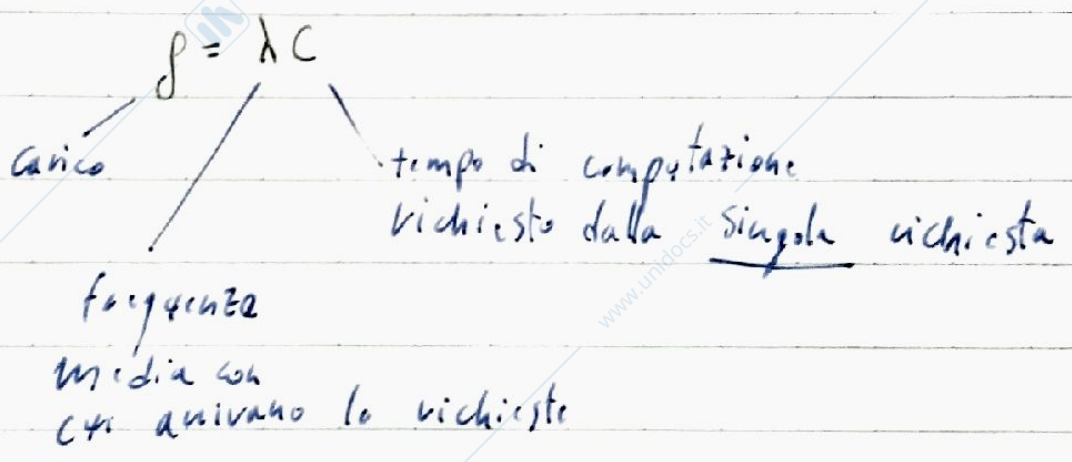 ρ = λ C
carico
tempo di computazione
richiesto dalla singola richiesta
frequenza
media con
cui arrivano le richieste
www.unidocs.it